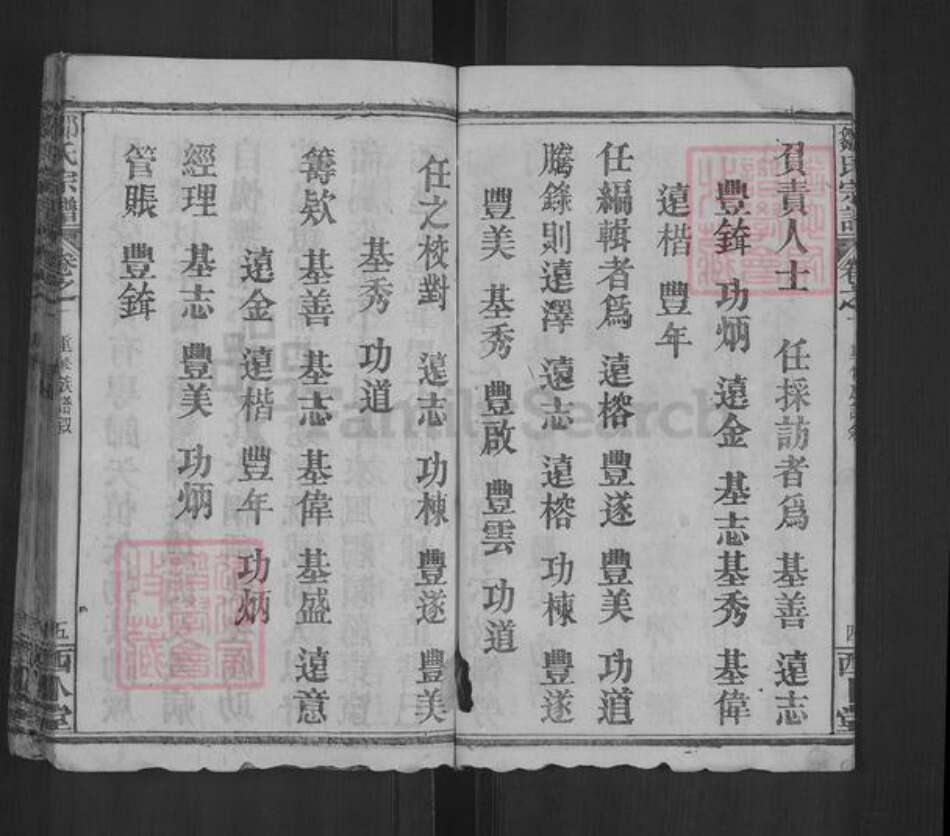 負責人士 任採訪者爲 基善 遠志
豐錐 功炳 遠金 基志 基秀 基偉
遠楷 豐年
任編輯者爲 遠榕 豐遂 豐美 功道
騰錄則遠澤 遠志 遠榕 功棟 豐遂
豐美 基秀 豐啟 豐雲 功道
任之校對 遠志 功棟 豐遂 豐美
基秀 功道
籌欵 基善 基志 基偉 基盛 遠意
遠金 遠楷 豐年 功炳
經理 基志 豐美 功炳
管賬 豐錐
氏宗譜 卷之一
五
FamilySearch